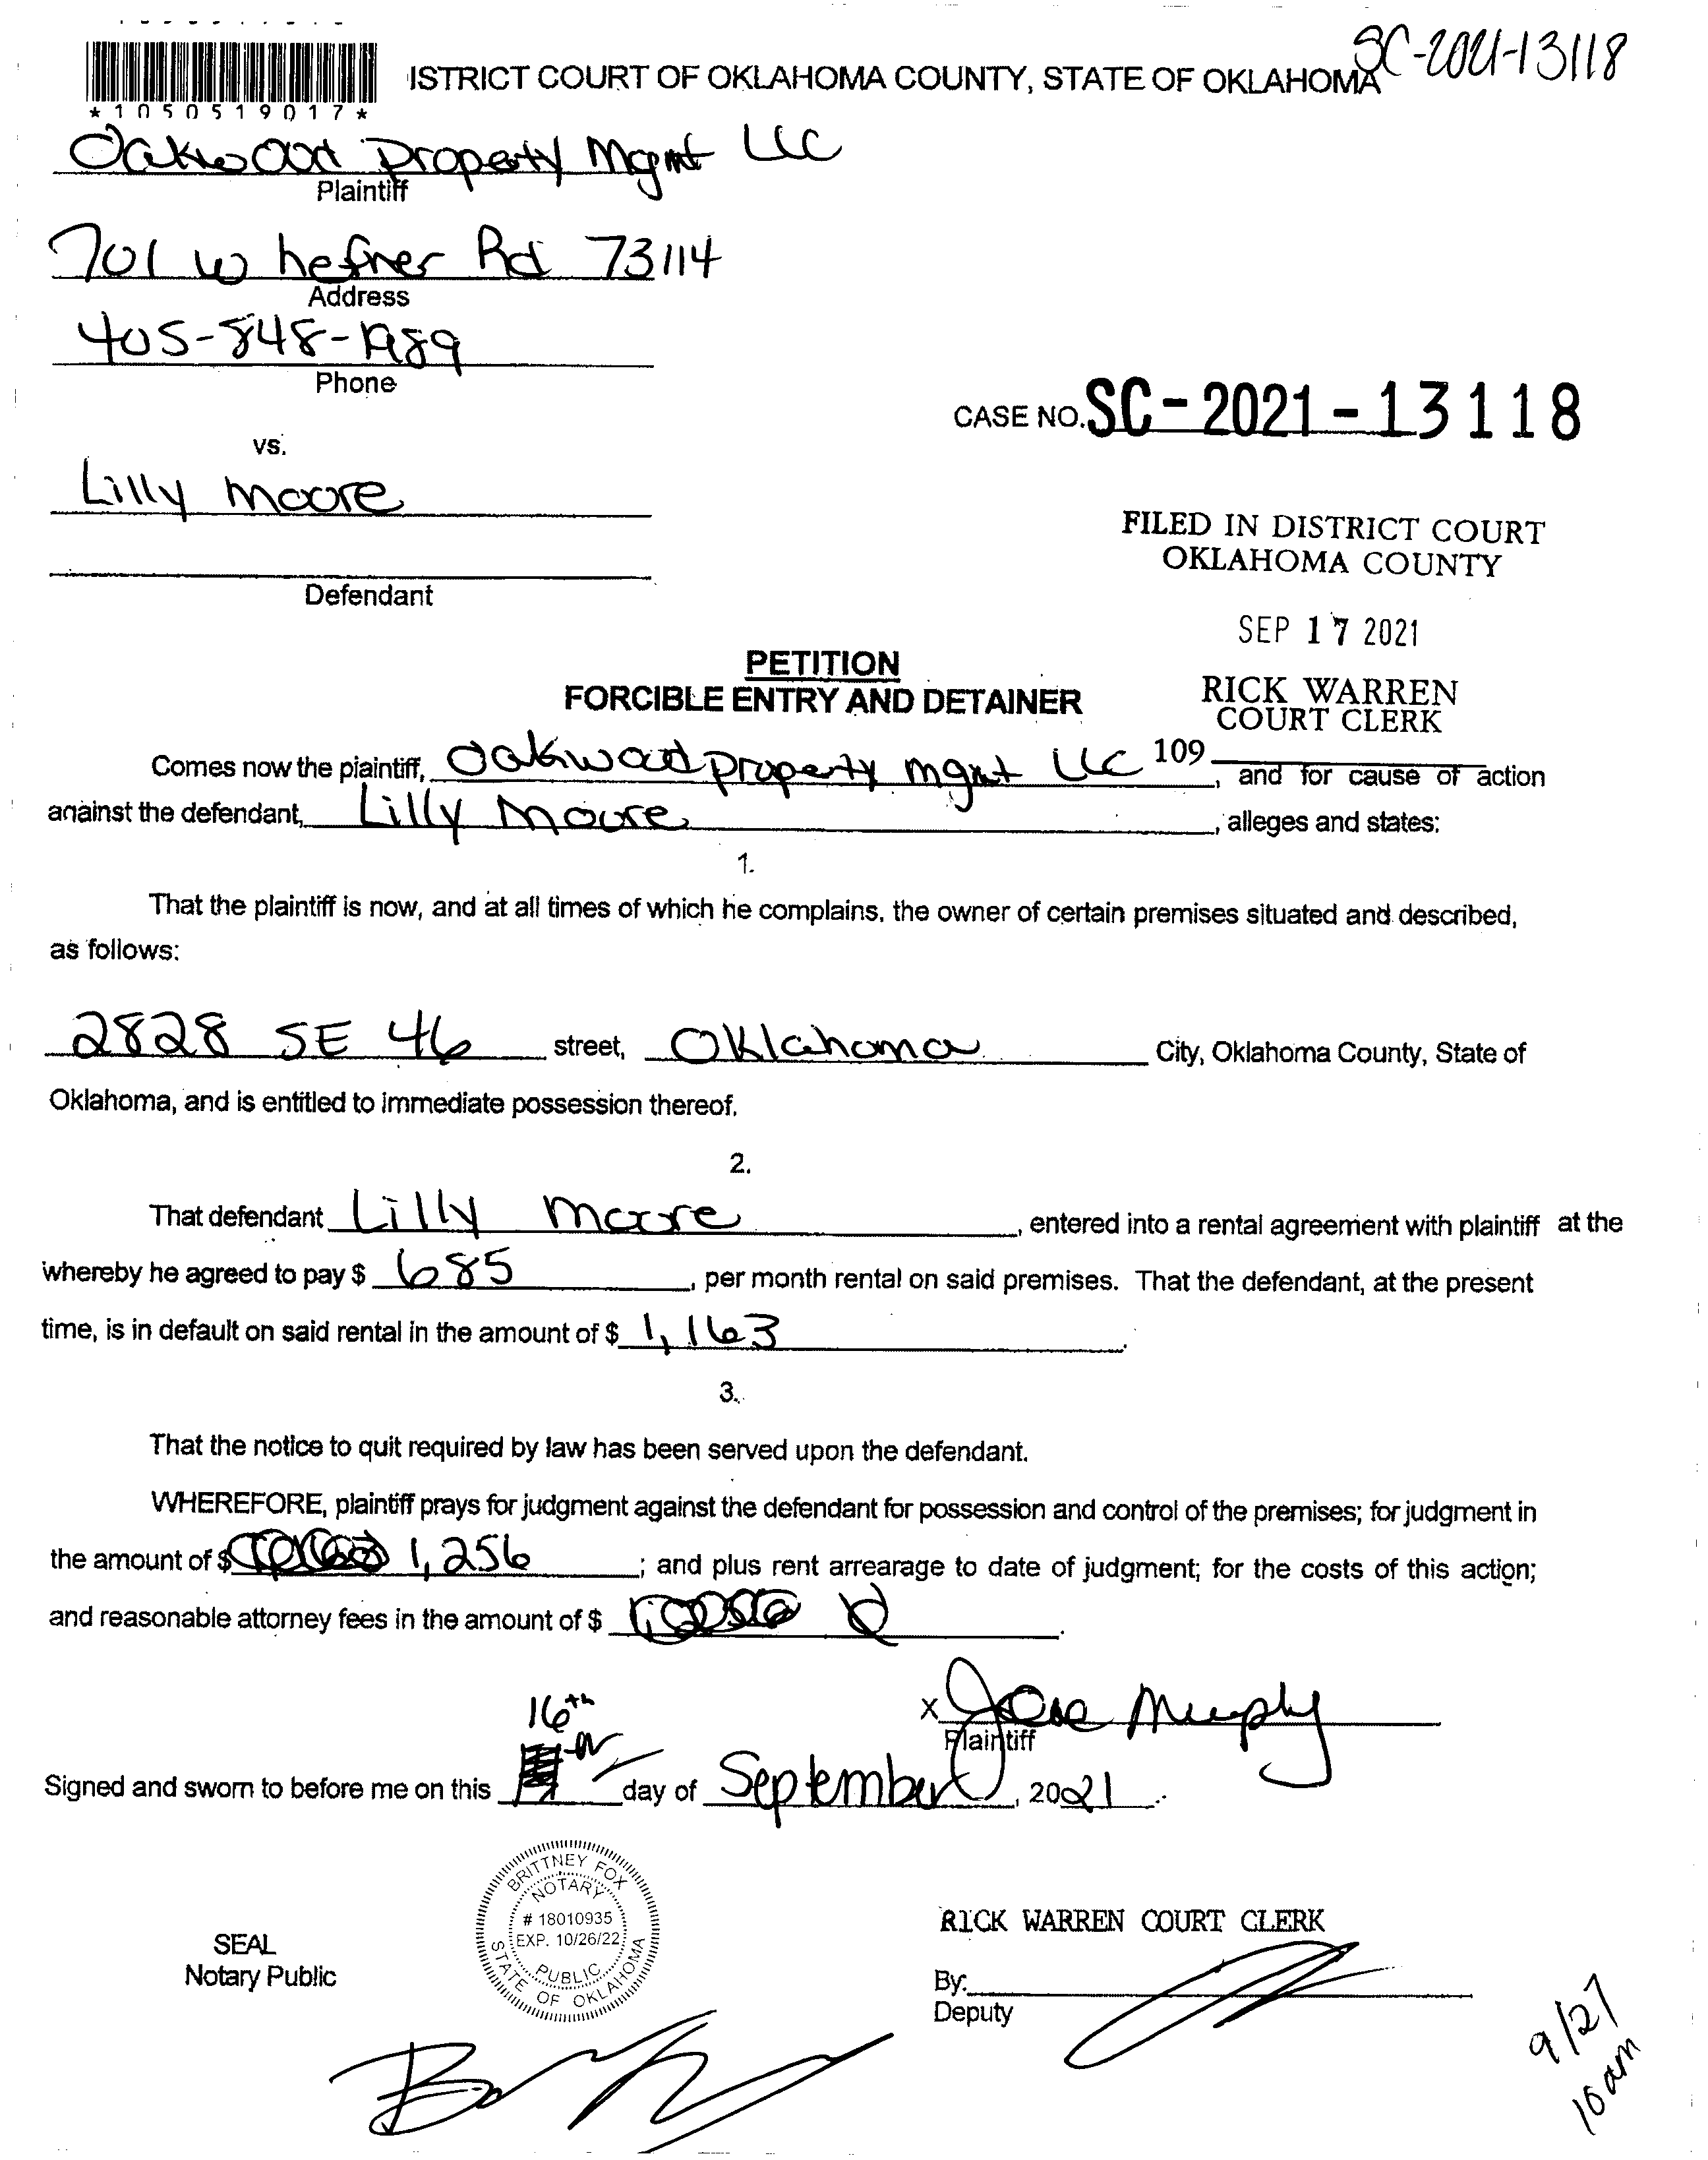 SC-2021-13118
ISTRICT COURT OF OKLAHOMA COUNTY, STATE OF OKLAHOMA
*1050519017*
Oakwood Property Mgmt LLC
Plaintiff
701 W hefner Rd 73114
Address
405-848-1989
Phone
CASE NO. SC-2021-13118
vs.
Lilly Moore
FILED IN DISTRICT COURT
OKLAHOMA COUNTY
Defendant
SEP 17 2021
PETITION
FORCIBLE ENTRY AND DETAINER
RICK WARREN
COURT CLERK
109
Comes now the plaintiff, Oakwood property mgmt LLC, and for cause of action
against the defendant, Lilly Moore, alleges and states:
1.
That the plaintiff is now, and at all times of which he complains, the owner of certain premises situated and described,
as follows:
2828 SE 46 street, Oklahoma City, Oklahoma County, State of
Oklahoma, and is entitled to immediate possession thereof.
2.
That defendant Lilly Moore, entered into a rental agreement with plaintiff at the
whereby he agreed to pay $ 685, per month rental on said premises. That the defendant, at the present
time, is in default on said rental in the amount of $ 1,163.
3.
That the notice to quit required by law has been served upon the defendant.
WHEREFORE, plaintiff prays for judgment against the defendant for possession and control of the premises; for judgment in
the amount of $ 1,256; and plus rent arrearage to date of judgment; for the costs of this action;
and reasonable attorney fees in the amount of $
x
Plaintiff
16th
Signed and sworn to before me on this day of September, 2021.
BRITTNEY FOX
NOTARY
# 18010935
EXP. 10/26/22
PUBLIC
STATE OF OKLAHOMA
SEAL
Notary Public
RICK WARREN COURT CLERK
By:
Deputy
9/27
10am